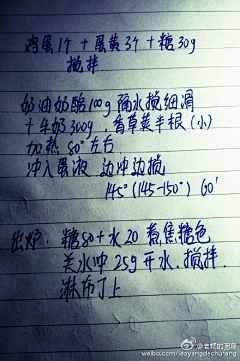 鸡蛋1个 + 蛋黄3个 + 糖30g
搅拌
奶油奶酪100g 隔水搅细滑
+ 牛奶300g, 香草荚半根 (小)
加热 80°左右
冲入蛋液 边冲边搅
145° (145-150°) 60'
出炉: 糖80 + 水20 煮焦糖色
关火冲25g开水. 搅拌
淋布丁上
@老杨的厨房
weibo.com/laoyangdechufang